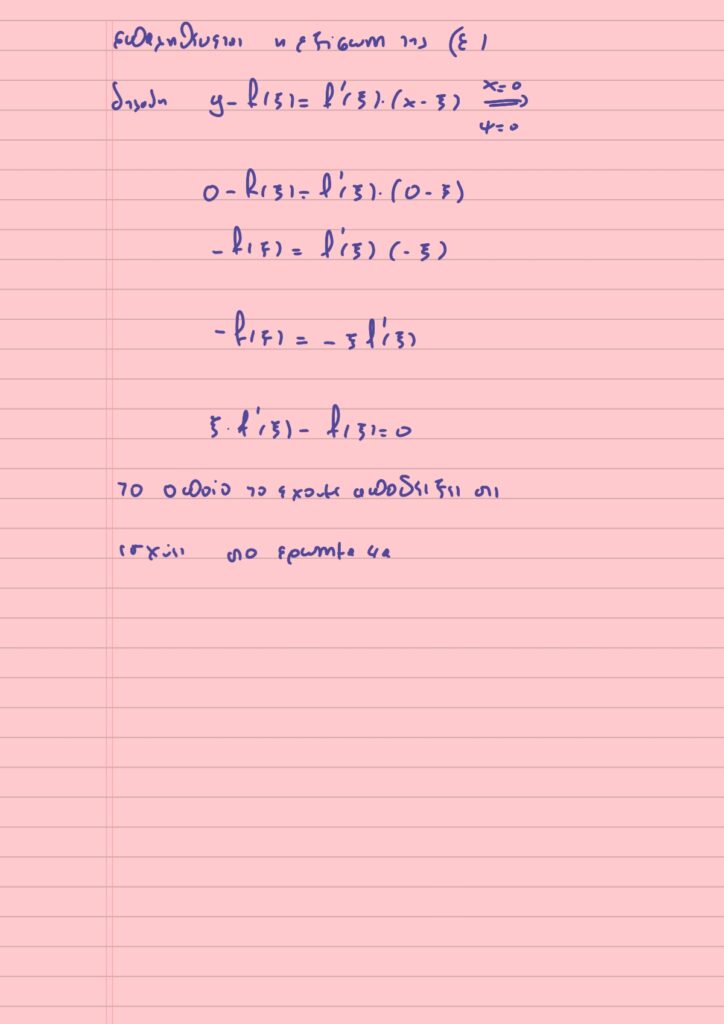 επαληθευεται η εξισωση της (ε)
δηλαδη y-f(ξ)=f'(ξ)·(x-ξ) x=0 ψ=0 ⇒
0-f(ξ)=f'(ξ)·(0-ξ)
-f(ξ)=f'(ξ)(-ξ)
-f(ξ)=-ξf'(ξ)
ξ·f'(ξ)-f(ξ)=0
το οποίο το εχουμε αποδειξει οτι
ισχύει στο ερωτημα